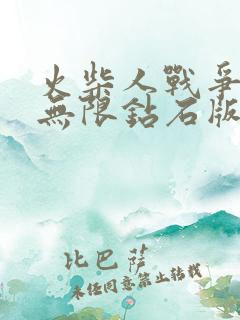 火柴人戰爭
無限鈷石版
比巴薩
未任同意禁止轉載